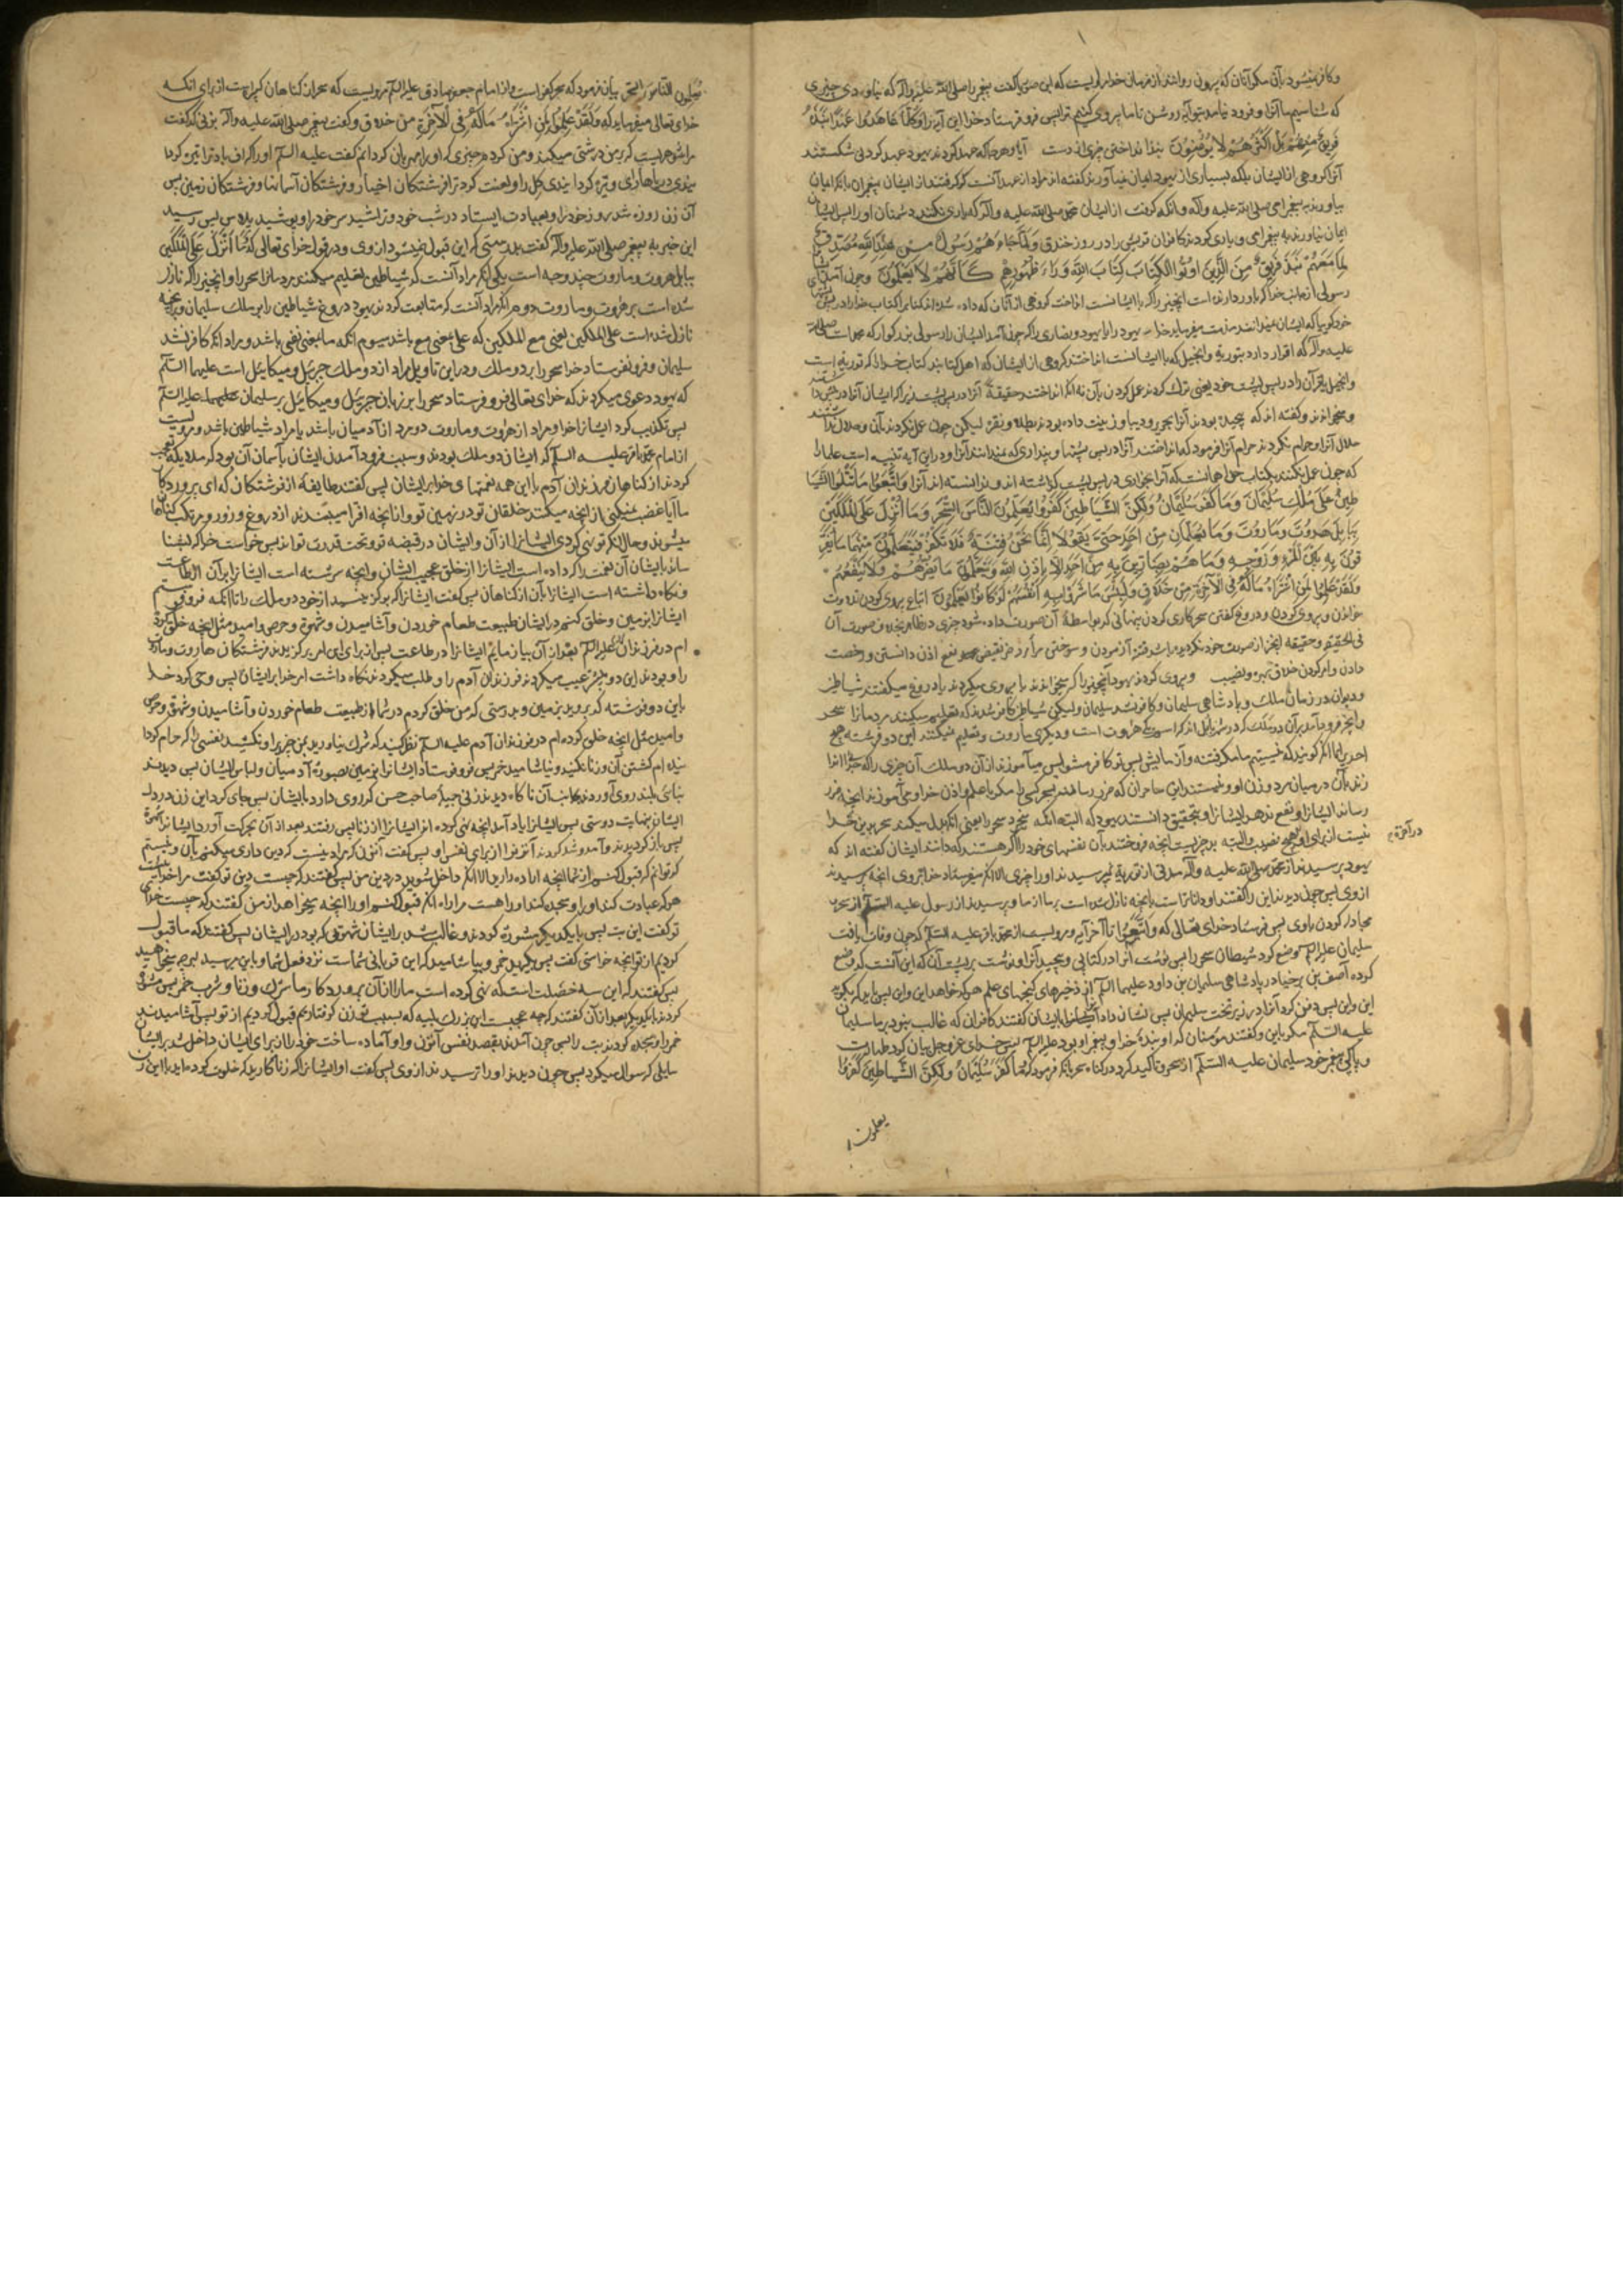 و کافر نمیشود بآن مکر آنان که بیرون روانند از فرمان خدا مرویست که ابن صوریا گفت پیغمبر را صلی الله علیه و آله که نیاوردی چیزی
که شناسیم ما آنرا و فرود نیامد بتو آیه روشن تا ما پیروی کنیم ترا پس فرو فرستاد خدا این آیه را اَوَكُلَّمَا عَاهَدُوا عَهْدًا نَبَذَهُ
فَرِيقٌ مِنْهُمْ بَلْ اَكْثَرُهُمْ لَا يُؤْمِنُونَ نبذ انداختن چیزی از دست آیا و هرجا که عهد کردند یهود عهد کردنی شکستند
آنرا گروهی از ایشان بلکه بسیاری از یهود ایمان نمیآورند گفته اند مراد از عهد آنست که گرفتند از ایشان پیغمبران بانکه ایمان
بیاورند به پیغمبر امی صلی الله علیه و آله و انکه گرفت از ایشان محمد صلی الله علیه و آله که یاری نکنند دشمنان او را پس ایشان
ایمان نیاوردند به پیغمبر امی و یاری کردند کافران قریش را در روز خندق وَلَمَّا جَاءَهُمْ رَسُولٌ مِنْ عِنْدِ اللّٰهِ مُصَدِّقٌ
لِمَا مَعَهُمْ نَبَذَ فَرِيقٌ مِنَ الَّذِينَ اُوتُوا الْكِتَابَ كِتَابَ اللّٰهِ وَرَاءَ ظُهُورِهِمْ كَاَنَّهُمْ لَا يَعْلَمُونَ و چون آمد
رسولی از جانب خدا که باور دارنده است انچیز را که با ایشانست انداخت گروهی از آنان که داده شده اند کتاب را کتاب خدا را در پس
خود گویا که ایشان نمیدانند
علیه و آله که اقرار دارد بتوریة و انجیل که با ایشانست انداختند گروهی از ایشان که اهل کتابند کتاب خدا را که توریة است
و انجیل یا قرآن را در پس پشت خود یعنی ترک کردند عمل کردن بآن نه انکه انداختند حقیقة آنرا در پس پشت زیرا که ایشان آنرا در
و میخواندند و گفته اند که پیچیده بودند آنرا بحریر و دیبا و زینت داده بودند بطلا و نقره لیکن چون عمل نکردند بآن و حلال ندانستند
حلال آنرا و حرام نکردند حرام آنرا فرمود که انداختند آنرا در پس پشتها و پنداری که نمیدانند آنرا و در این آیه تنبیه است علما را
که چون عمل نکنند بکتاب خدا همانست که آنرا بخواری در پس پشت گذاشته اند و ندانسته اند آنرا وَاتَّبَعُوا مَا تَتْلُوا الشَّيَا
طِينُ عَلٰى مُلْكِ سُلَيْمَانَ وَمَا كَفَرَ سُلَيْمَانُ وَلٰكِنَّ الشَّيَاطِينَ كَفَرُوا يُعَلِّمُونَ النَّاسَ السِّحْرَ وَمَا اُنْزِلَ عَلَى الْمَلَكَيْنِ
بِبَابِلَ هَارُوتَ وَمَارُوتَ وَمَا يُعَلِّمَانِ مِنْ اَحَدٍ حَتّٰى يَقُولَا اِنَّمَا نَحْنُ فِتْنَةٌ فَلَا تَكْفُرْ فَيَتَعَلَّمُونَ مِنْهُمَا مَا يُفَرِّ
قُونَ بِهِ بَيْنَ الْمَرْءِ وَزَوْجِهِ وَمَا هُمْ بِضَارِّينَ بِهِ مِنْ اَحَدٍ اِلَّا بِاِذْنِ اللّٰهِ وَيَتَعَلَّمُونَ مَا يَضُرُّهُمْ وَلَا يَنْفَعُهُمْ
وَلَقَدْ عَلِمُوا لَمَنِ اشْتَرَاهُ مَا لَهُ فِي الْآخِرَةِ مِنْ خَلَاقٍ وَلَبِئْسَ مَا شَرَوْا بِهِ اَنْفُسَهُمْ لَوْ كَانُوا يَعْلَمُونَ اتباع پیروی کردن تلاوت
خواندن و پیروی کردن و دروغ گفتن سحر کاری کردن پنهانی که بواسطه آن صورت داده شود چیزی در ظاهر بخلاف صورت آن
دادن و امر کردن خلاق بهره و نصیب و پیروی کردند یهود آنچیز را که میخواندند یا پیروی میکردند یا دروغ میگفتند شیاطین
و دیوان در زمان ملک و پادشاهی سلیمان و کافر نشد سلیمان و لیکن شیاطین کافر شدند که تعلیم میکنند مردمان را سحر
و انچه فرود آمد بر آن دو ملک که در شهر بابل اند که اسم یکی هاروت است و دیگری ماروت و تعلیم نمیکنند این دو فرشته هیچ
احدیرا تا انکه گویند که نیستیم ما مگر فتنه و آزمایش پس تو کافر مشو پس میآموزند از آن دو ملک آن چیزی را که جدا اندا
زند بآن در میان مرد و زن او و نیستند این ساحران که ضرر رسانند بسحر کسی را مگر با علم و اذن خدا و میآموزند انچه ضرر
رساند ایشانرا و نفع ندهد ایشانرا و بتحقیق دانستند یهود که البته انکه بخرد سحر را یعنی انکه بدل میکند سحر بدین خدا
نیست از برای او هیچ نصیب و البته بد چیزیست انچه فروختند بآن نفسهای خود را اگر هستند که دانند ایشان گفته اند که
در آخرة
یهود پرسیدند از محمد صلی الله علیه و آله مدتی از توریة نمیپرسیدند او را چیزی الا انکه میفرستاد خدا بر وی انچه پرسیدند
از وی پس چون دیدند این را گفتند او داناتر است بانچه نازل شده است بر ما از ما و پرسیدند از رسول علیه السلام از سحر
مجادله کردن باوی پس فرستاد خدای تعالی که وَاتَّبَعُوا تا آخر آیه و مرویست از محمد باقر علیه السلام که چون وفات یافت
سلیمان علیه السلام وضع کرد شیطان سحر را پس نوشت آنرا در کتابی و پیچید آنرا و نوشت بر پشت آن که این آنست که وضع
کرده آصف بن برخیا در پادشاهی سلیمان بن داود علیهما السلام از ذخیرهای گنجهای علم هرکه خواهد این و این پس باید که بکوید
این و این پس دفن کرد آنرا در زیر تخت سلیمان پس نشان داد آنها را بایشان گفتند کافران که غالب نبود بر ما سلیمان
علیه السلام مگر باین و گفتند مؤمنان که او بنده خدا و پیغمبر او بود علیه السلام پس خدای عز و جل بیان کرد طهارت
و پاکی پیغمبر خود سلیمان علیه السلام از سحر و تاکید کرد در گناه سحر بانکه فرمود که وَمَا كَفَرَ سُلَيْمَانُ وَلٰكِنَّ الشَّيَاطِينَ كَفَرُوا
یعلمون
يُعَلِّمُونَ النَّاسَ السِّحْرَ بیان فرمود که سحر کفر است و از امام جعفر صادق علیه السلام مرویست که سحر از گناهان کبیره است از برای انکه
خدای تعالی میفرماید که وَلَقَدْ عَلِمُوا لَمَنِ اشْتَرَاهُ مَا لَهُ فِي الْآخِرَةِ مِنْ خَلَاقٍ و گفت پیغمبر صلی الله علیه و آله بزنی که گفت
مرا شوهریست که بر من درشتی میکند و من کرده ام چیزی که او را مهربان گردانم گفت علیه السلام او را که اف باد ترا تیره کردا
نیدی دریاها را و تیره گردانیدی گل را و لعنت کرد ترا فرشتگان اخیار و فرشتگان آسمانها و فرشتگان زمین پس
آن زن روزه شد روز خود را و بعبادت ایستاد در شب خود و تراشید سر خود را و پوشید پلاس پس رسید
این خبر به پیغمبر صلی الله علیه و آله گفت بدرستی که این قبول نمیشود از وی و در قول خدای تعالی که وَمَا اُنْزِلَ عَلَى الْمَلَكَيْنِ
ببابل هاروت و ماروت چند وجه است یکی انکه مراد آنست که شیاطین تعلیم میکنند مردمانرا سحر را و انچیز را که نازل
شده است بر هاروت و ماروت دوم انکه مراد آنست که متابعت کردند یهود دروغ شیاطین را بر ملک سلیمان و بر انچه
نازل شده است علی الملکین یعنی مع الملکین که علی بمعنی مع باشد سیوم انکه ما بمعنی نفی باشد و مراد انکه کافر نشد
سلیمان و فرو نفرستاد خدا سحر را بر دو ملک و در این تاویل مراد از دو ملک جبرئیل و میکائیل است علیهما السلام
که یهود دعوی میکردند که خدای تعالی فرو فرستاد سحر را بر زبان جبرئیل و میکائیل بر سلیمان علیه السلام
پس تکذیب کرد ایشانرا خدا و مراد از هاروت و ماروت دو مرد از آدمیان باشد یا مراد شیاطین باشد و مرویست
از امام محمد باقر علیه السلام که ایشان دو ملک بودند و سبب فرود آمدن ایشان بآسمان آن بود که ملائکه تعجب
کردند از گناهان فرزندان آدم با این همه نعمتهای خدا بر ایشان پس گفتند طایفه از فرشتگان که ای پروردگار
ما آیا غضب نمیکنی از انچه میکنند خلقان تو در زمین تو و از انچه افترا میبندند از دروغ و زور و مرتکب گناهان
میشوند و حال انکه تو نهی کردی ایشانرا از آن و ایشان در قبضه تو و تحت قدرت تواند پس خواست خدا که بشنا
ساند بایشان آن نعمتها که داده است ایشانرا از خلق عجیب ایشان و انچه سرشته است ایشانرا بر آن از طاعت
و نگاه داشته است ایشانرا بآن از گناهان پس گفت ایشانرا که برگزینید از خود دو ملک را تا انکه فرو فرستم
ایشانرا بزمین و خلق کنم در ایشان طبیعت طعام خوردن و آشامیدن و شهوة و حرص و امید مثل انچه خلق کرده
ام در فرزندان آدم علیه السلام بعد از آن بیازمایم ایشانرا در طاعت پس از برای این امر برگزیدند فرشتگان هاروت و ماروت
را و بودند این دو بیشتر عیب میکردند فرزندان آدم را و طلب میکردند نگاه داشت امر خدا بر ایشان پس وحی کرد خدا
باین دو فرشته که بروید بزمین و بدرستی که من خلق کردم در شما از طبیعت طعام خوردن و آشامیدن و شهوة و حرص
و امید مثل انچه خلق کرده ام در فرزندان آدم علیه السلام نظر کنید که شرک نیاورید بمن چیزی را و نکشید نفسی را که حرام کردا
نیده ام کشتن آن و زنا نکنید و نیاشامید خمر پس فرو فرستاد ایشانرا بزمین بصورة آدمیان و لباس ایشان پس دیدند
بنای بلند روی آوردند بجانب آن ناگاه دیدند زنی جمیله صاحب حسن که روی دارد بایشان پس جای کرد این زن در دل
ایشان بنهایت دوستی پس ایشانرا یاد آمد انچه نهی کرده اند ایشانرا از زنا پس رفتند بعد از آن بحرکت آورد ایشانرا شهوة
پس باز گردیدند و آمد و شد کردند آنزنرا از برای نفس او پس گفت آنزن که مراد دینیست که دین داری میکنم بآن و نیستم
که توانم که قبول کنم از شما انچه اراده دارید الا انکه داخل شوید در دین من پس گفتند که چیست دین تو گفت مرا خدائیست
هرکه عبادت کند او را و سجده کند او را هست مرا راه انکه قبول کنم او را انچه میخواهد از من گفتند که چیست خدای
تو گفت این بت پس با یکدیگر مشورة کردند و غالب شد بر ایشان شهوتی که بود در ایشان پس گفتند که ما قبول
کردیم از تو انچه خواستی گفت پس بگیرید خمر و بیاشامید که این قربانی شماست نزد فعل شما و باین میرسید بهرچه میخواهید
پس گفتند که این سه خصلت است که نهی کرده است ما را از آن پروردگار ما شرک و زنا و شرب خمر پس مشورة
کردند با یکدیگر بعد از آن گفتند که چه عجیبست این بزرگ بلیه که بسبب تو زن گرفتاریم قبول کردیم از تو پس آشامیدند
خمر را و سجده کردند بت را پس چون آمدند بقصد نفس آنزن و او آماده ساخت خود را از برای ایشان داخل شد بر ایشان
سایلی که سوال میکرد پس چون دیدند او را ترسیدند از وی پس گفت او ایشانرا که زناکارید که خلوت کرده اید با این زن